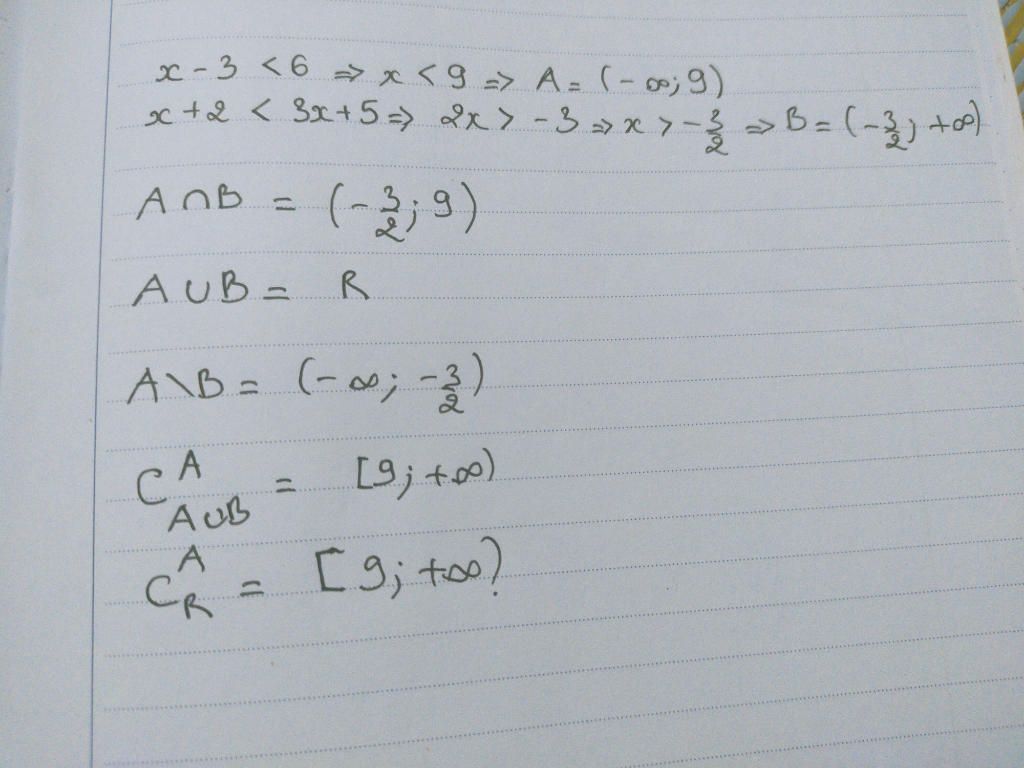 x - 3 < 6 ⇒ x < 9 ⇒ A = (-∞; 9)
x + 2 < 3x + 5 ⇒ 2x > -3 ⇒ x > -3/2 ⇒ B = (-3/2; +∞)
A ∩ B = (-3/2; 9)
A ∪ B = R
A \ B = (-∞; -3/2)
C^A_{A∪B} = [9; +∞)
C^A_R = [9; +∞)